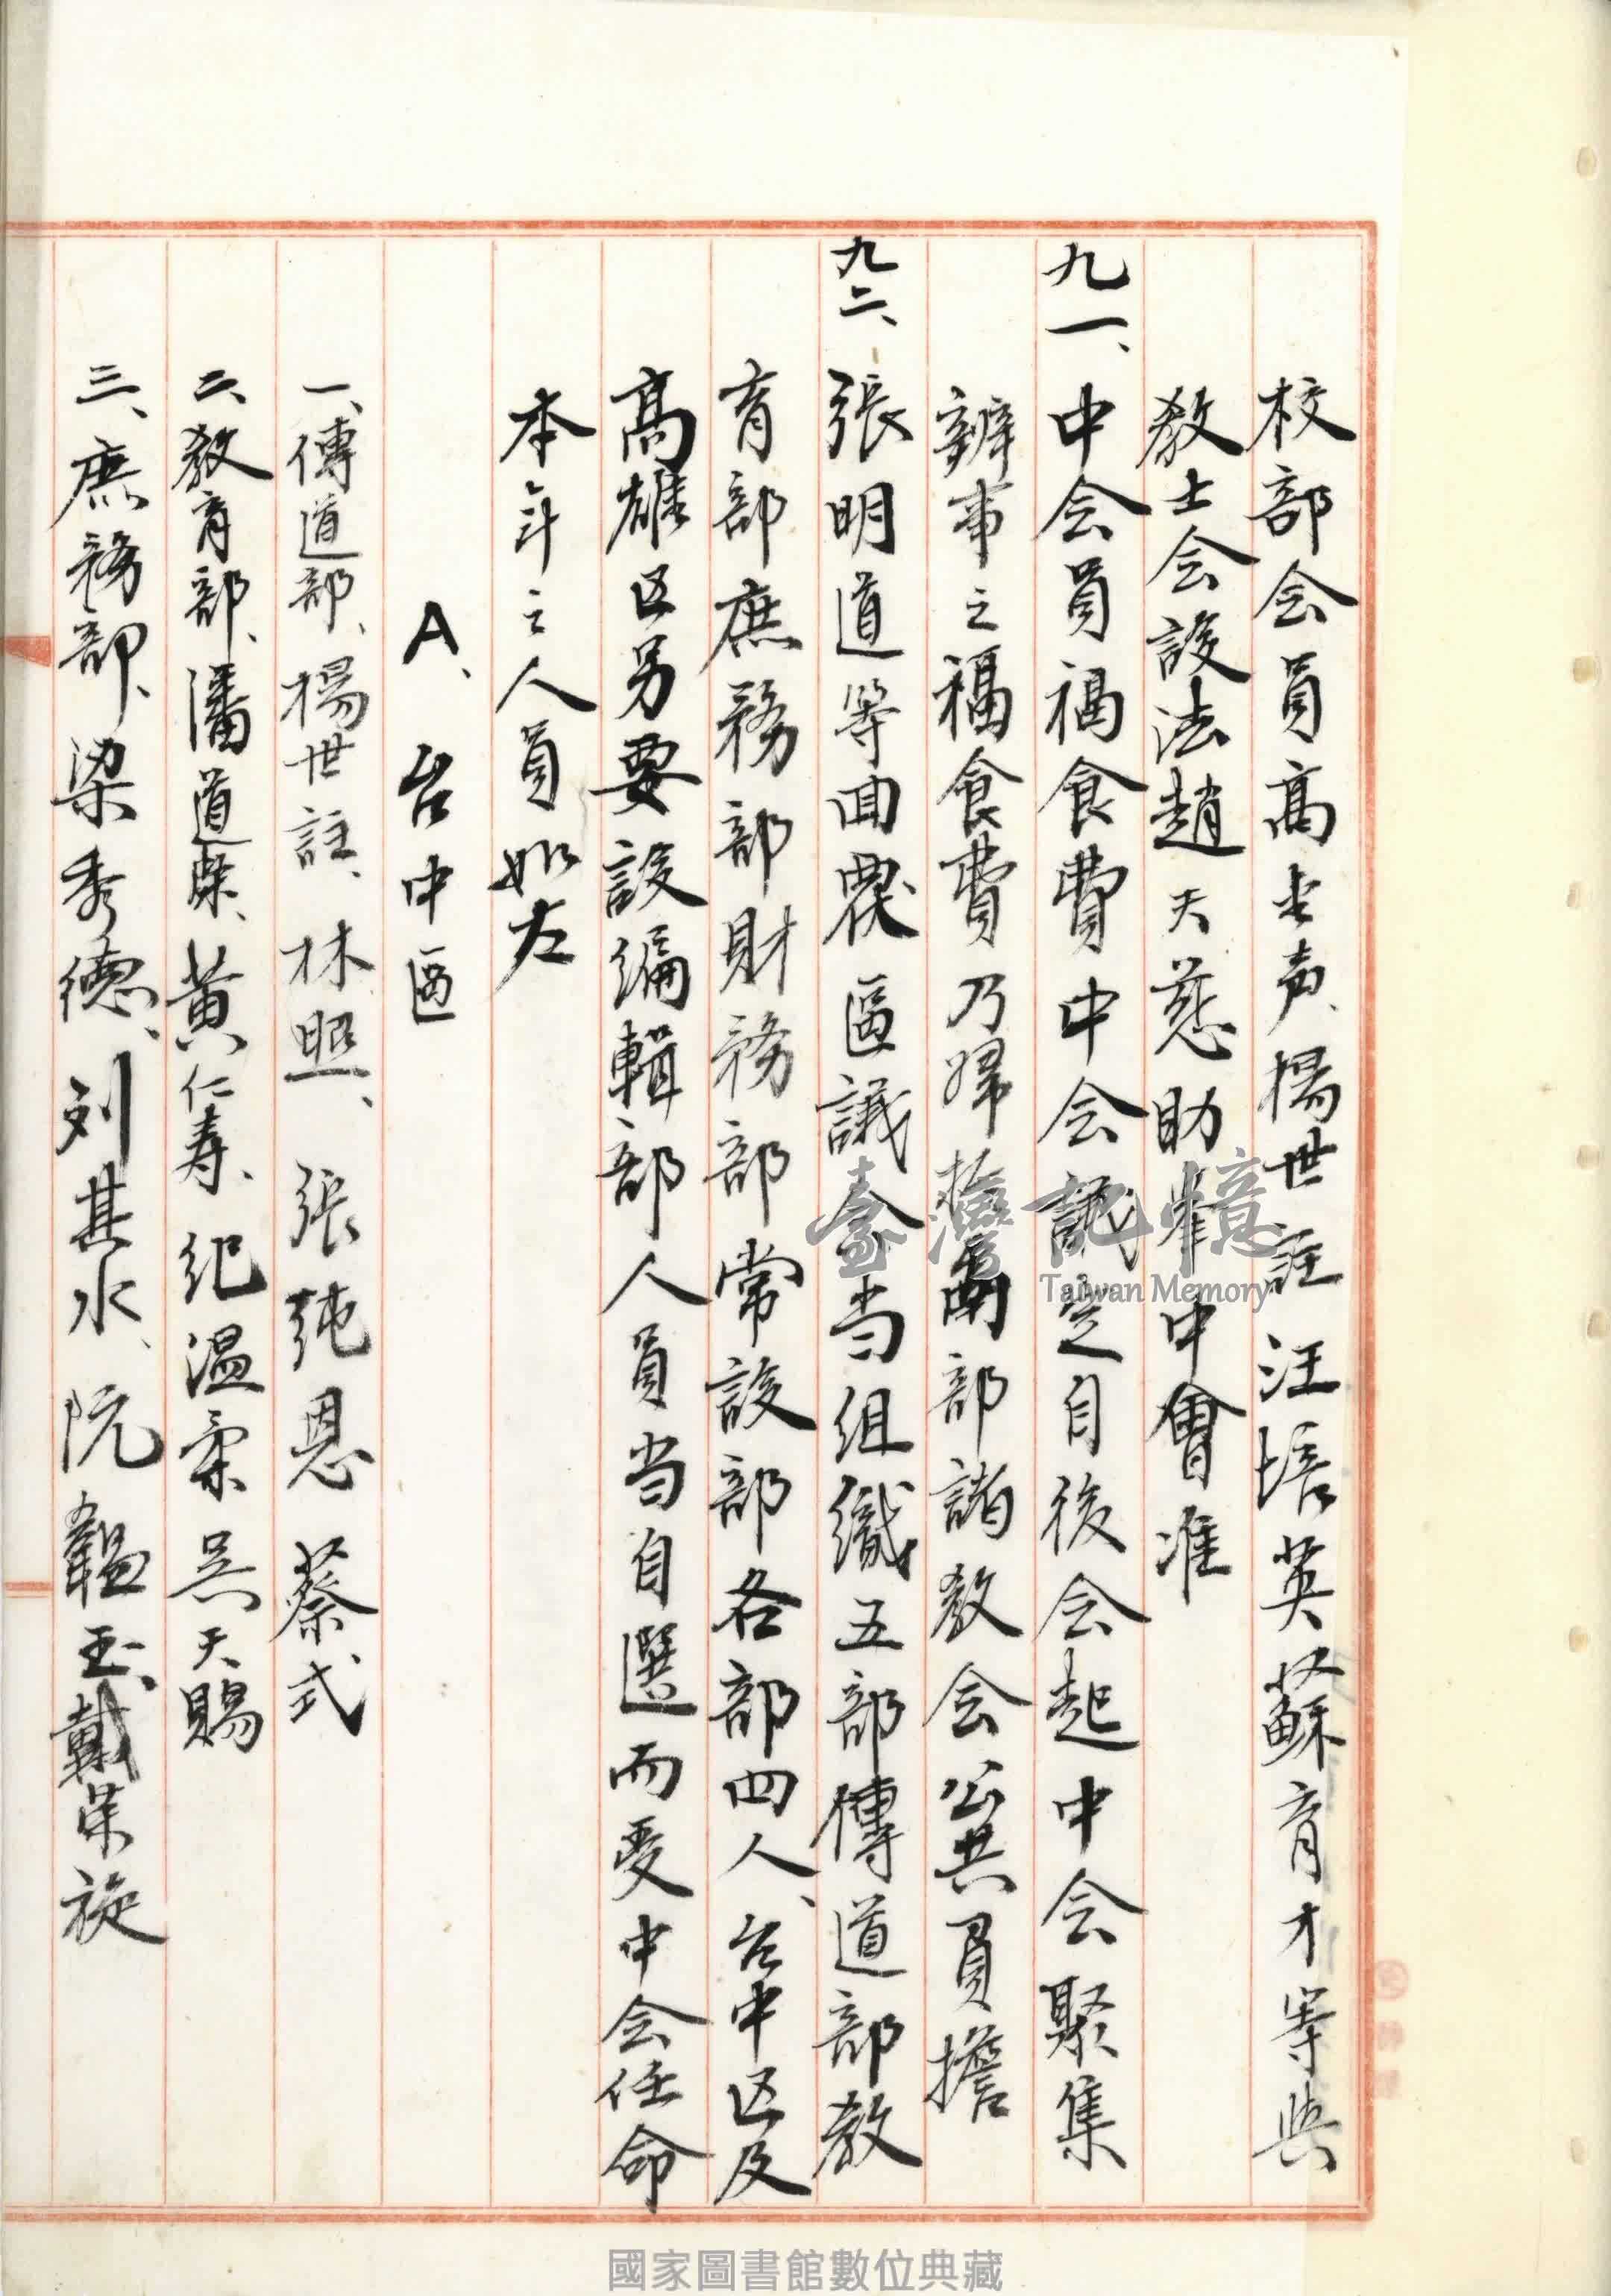 校部会員高金声、楊世註汪培英蘇育才等與
教士会設法趙天慈助牽中會准
九一、中会員福食費中会議定自後会起中会聚集
辦事之福食費乃歸 南部諸教会公共負擔
九二、張明道等回覆區議会当组織五部傳道部教
育部庶務部財務部常設部各部四人、台中区及
高雄区另要設編輯部人員当自選而受中会任命
本年之人員如左
A、台中區
一、傳道部、楊世註、林照、張純恩 蔡式
二、教育部、潘道榮、黃仁寿、纪温柔 吴天賜
三、庶務部、梁秀德、刘其水、阮韞玉、戴荣旋
臺灣記憶
Taiwan Memory
國家圖書館數位典藏